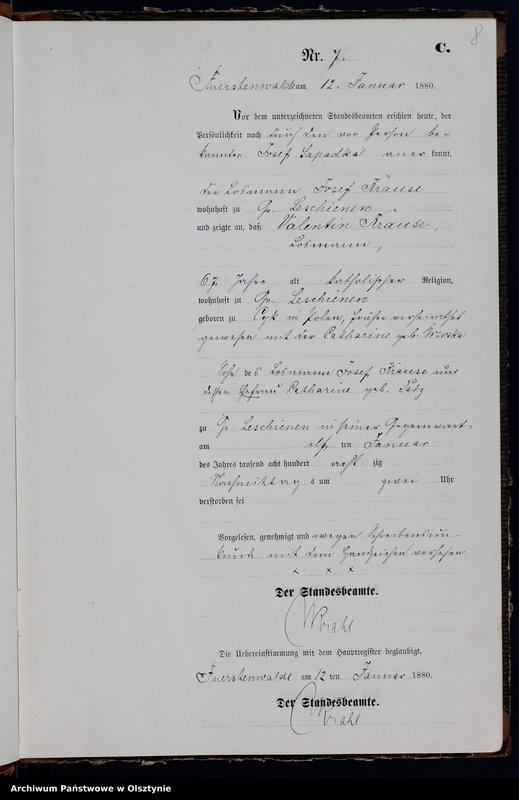 8
C.
Nr. 7.
Fuerstenwalde am 12. Januar 1880.
Vor dem unterzeichneten Standesbeamten erschien heute, der
Persönlichkeit nach durch den von Person be-
kannten Josef Sapadka anerkannt,
der Losmann Josef Krause
wohnhaft zu Gr. Leschienen
und zeigte an, daß Valentin Krause,
Losmann,
67 Jahre alt katholischer Religion,
wohnhaft zu Gr. Leschienen
geboren zu in Polen, früher verheirathet
gewesen mit der Catharine geb.
Sohn des Losmann Josef Krause und
dessen Ehefrau Catharine geb.
zu Gr. Leschienen in seiner Gegenwart
am elf ten Januar
des Jahres tausend acht hundert acht zig
Nachmittag s um zwei Uhr
verstorben sei
Vorgelesen, genehmigt und wegen Schreibensun-
kunde mit dem Handzeichen versehen.
x x x
Der Standesbeamte.
Krahl
Die Uebereinstimmung mit dem Hauptregister beglaubigt.
Fuerstenwalde am 12 ten Januar 1880.
Der Standesbeamte.
Krahl
Archiwum Państwowe w Olsztynie